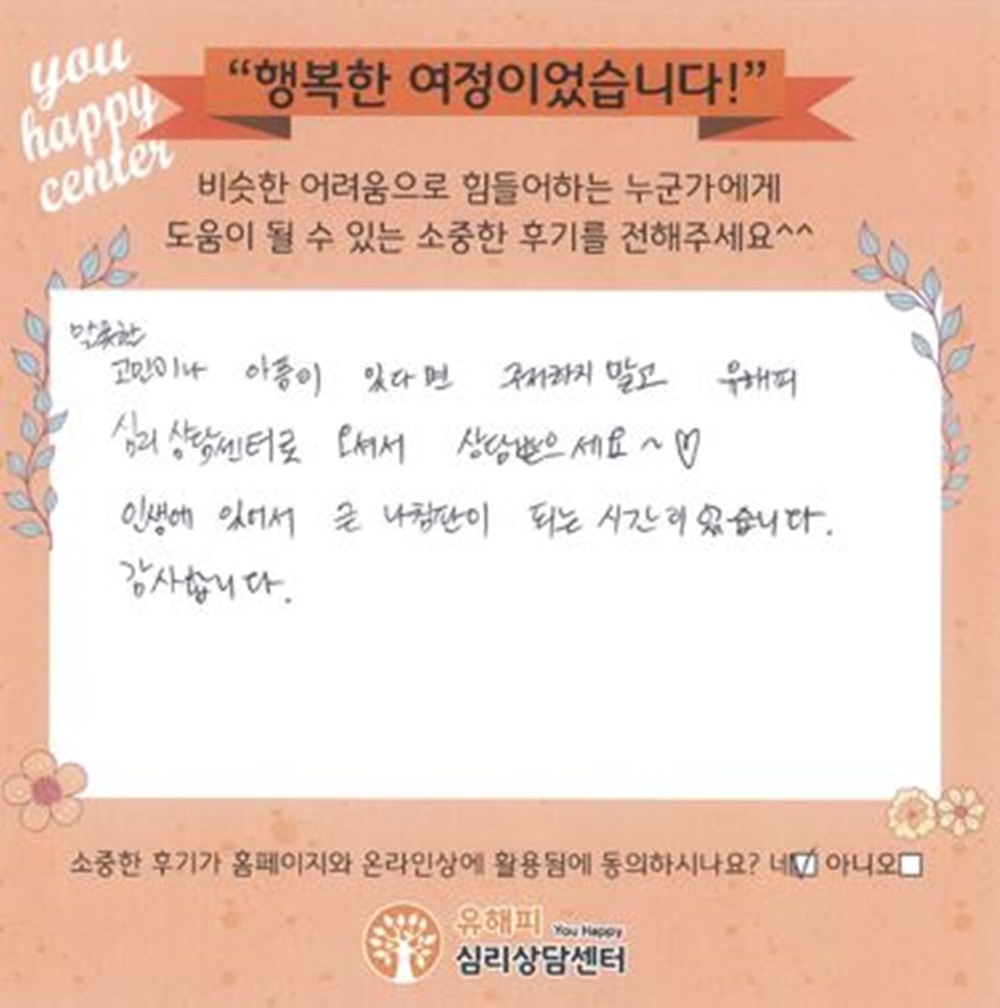 you
happy
center
“행복한 여정이었습니다!”
비슷한 어려움으로 힘들어하는 누군가에게
도움이 될 수 있는 소중한 후기를 전해주세요^^
말못한
고민이나 아픔이 있다면 주저하지 말고 유해피
심리상담센터로 오셔서 상담받으세요~♡
인생에 있어서 큰 나침판이 되는 시간이 었습니다.
감사합니다.
소중한 후기가 홈페이지와 온라인상에 활용됨에 동의하시나요? 네☑ 아니오☐
유해피 You Happy
심리상담센터